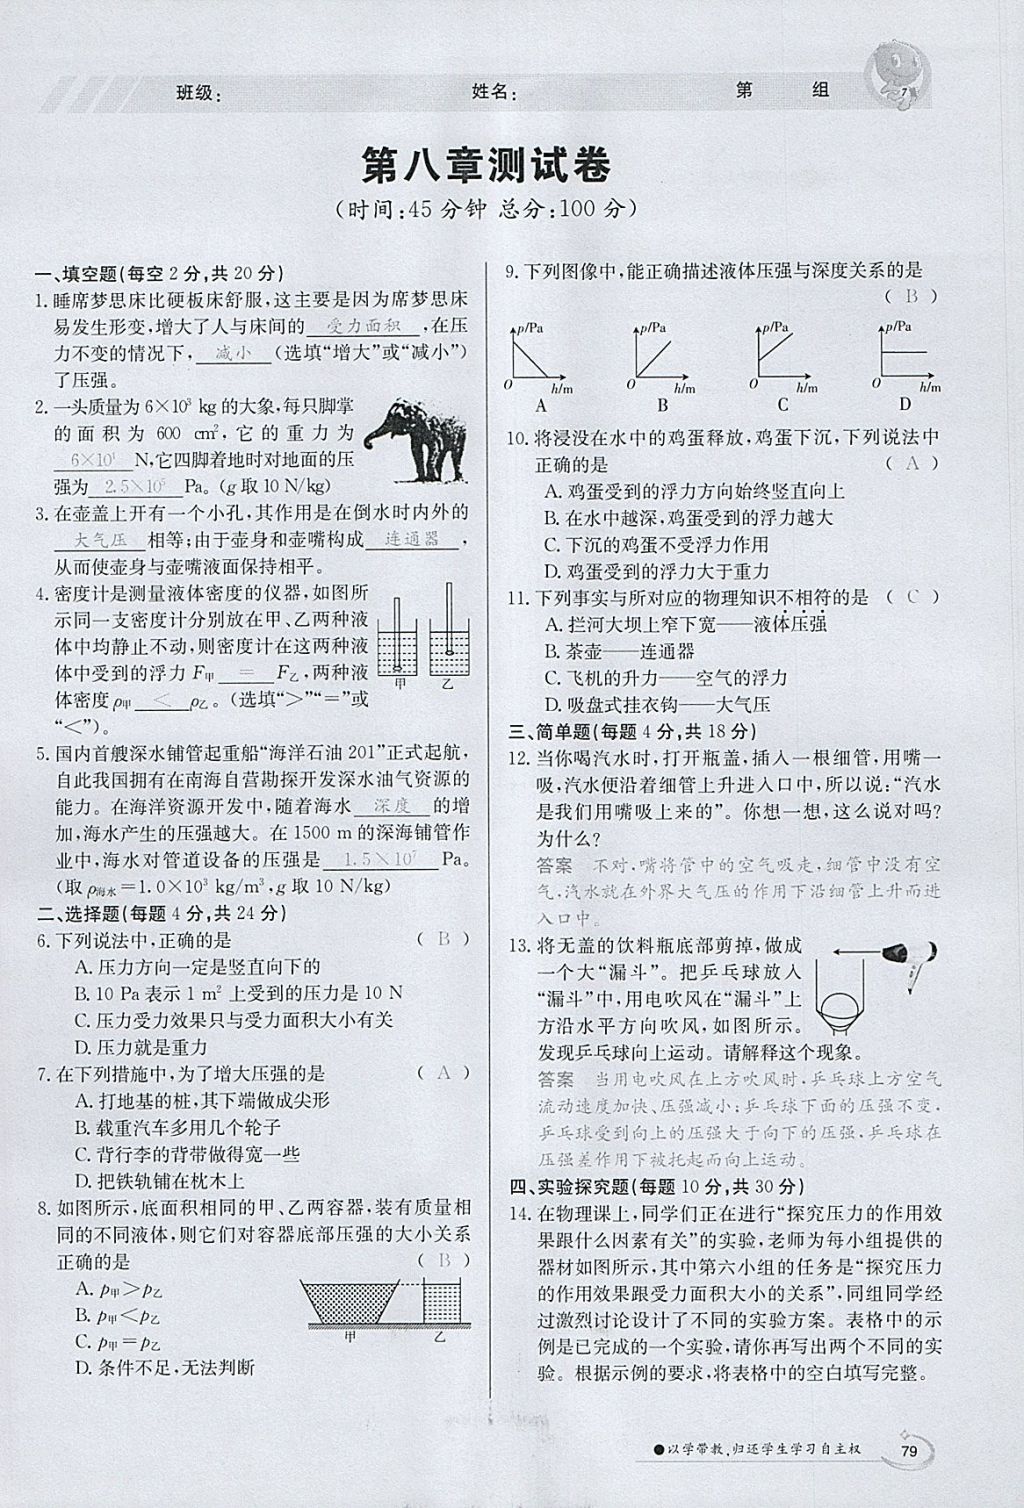 班级:
姓名:
第 组
第八章测试卷
(时间:45分钟 总分:100分)
一、填空题(每空2分,共20分)
1. 睡席梦思床比硬板床舒服,这主要是因为席梦思床
易发生形变,增大了人与床间的 受力面积 ,在压
力不变的情况下, 减小 (选填“增大”或“减小”)
了压强。
2. 一头质量为6×10³ kg的大象,每只脚掌
的面积为 600 cm²,它的重力为
6×10⁴ N,它四脚着地时对地面的压
强为 2.5×10⁵ Pa。(g取10 N/kg)
3. 在壶盖上开有一个小孔,其作用是在倒水时内外的
大气压 相等;由于壶身和壶嘴构成 连通器 ,
从而使壶身与壶嘴液面保持相平。
4. 密度计是测量液体密度的仪器,如图所
示同一支密度计分别放在甲、乙两种液
体中均静止不动,则密度计在这两种液
体中受到的浮力F甲 = F乙,两种液
体密度ρ甲 < ρ乙。(选填“>”“=”或
“<”)。
甲 乙
5. 国内首艘深水铺管起重船“海洋石油201”正式起航,
自此我国拥有在南海自营勘探开发深水油气资源的
能力。在海洋资源开发中,随着海水 深度 的增
加,海水产生的压强越大。在1500 m的深海铺管作
业中,海水对管道设备的压强是 1.5×10⁷ Pa。
(取ρ海水=1.0×10³ kg/m³,g取10 N/kg)
二、选择题(每题4分,共24分)
6. 下列说法中,正确的是 ( B )
A. 压力方向一定是竖直向下的
B. 10 Pa表示1 m²上受到的压力是10 N
C. 压力受力效果只与受力面积大小有关
D. 压力就是重力
7. 在下列措施中,为了增大压强的是 ( A )
A. 打地基的桩,其下端做成尖形
B. 载重汽车多用几个轮子
C. 背行李的背带做得宽一些
D. 把铁轨铺在枕木上
8. 如图所示,底面积相同的甲、乙两容器,装有质量相
同的不同液体,则它们对容器底部压强的大小关系
正确的是 ( B )
A. p甲>p乙
B. p甲<p乙
C. p甲=p乙
D. 条件不足,无法判断
甲 乙
9. 下列图像中,能正确描述液体压强与深度关系的是
( B )
p/Pa p/Pa p/Pa p/Pa
O h/m O h/m O h/m O h/m
A B C D
10. 将浸没在水中的鸡蛋释放,鸡蛋下沉,下列说法中
正确的是 ( A )
A. 鸡蛋受到的浮力方向始终竖直向上
B. 在水中越深,鸡蛋受到的浮力越大
C. 下沉的鸡蛋不受浮力作用
D. 鸡蛋受到的浮力大于重力
11. 下列事实与所对应的物理知识不相符的是 ( C )
A. 拦河大坝上窄下宽——液体压强
B. 茶壶——连通器
C. 飞机的升力——空气的浮力
D. 吸盘式挂衣钩——大气压
三、简单题(每题4分,共18分)
12. 当你喝汽水时,打开瓶盖,插入一根细管,用嘴一
吸,汽水便沿着细管上升进入口中,所以说:“汽水
是我们用嘴吸上来的”。你想一想,这么说对吗?
为什么?
答案 不对,嘴将管中的空气吸走,细管中没有空
气,汽水就在外界大气压的作用下沿细管上升而进
入口中。
13. 将无盖的饮料瓶底部剪掉,做成
一个大“漏斗”。把乒乓球放入
“漏斗”中,用电吹风在“漏斗”上
方沿水平方向吹风,如图所示。
发现乒乓球向上运动。请解释这个现象。
答案 当用电吹风在上方吹风时,乒乓球上方空气
流动速度加快、压强减小;乒乓球下面的压强不变,
乒乓球受到向上的压强大于向下的压强,乒乓球在
压强差作用下被托起而向上运动。
四、实验探究题(每题10分,共30分)
14. 在物理课上,同学们正在进行“探究压力的作用效
果跟什么因素有关”的实验,老师为每小组提供的
器材如图所示,其中第六小组的任务是“探究压力
的作用效果跟受力面积大小的关系”,同组同学经
过激烈讨论设计了不同的实验方案。表格中的示
例是已完成的一个实验,请你再写出两个不同的实
验。根据示例的要求,将表格中的空白填写完整。
●以学带教,归还学生学习自主权
79